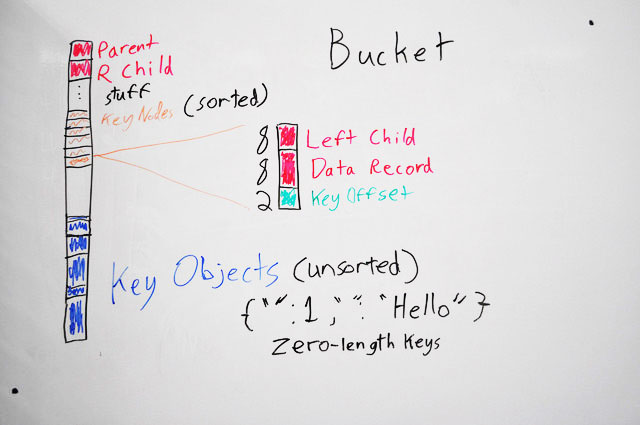 Bucket
Parent
R Child
stuff
Key Nodes (sorted)
8 Left Child
8 Data Record
2 Key Offset
Key Objects (unsorted)
{"":1, "": "Hello"}
Zero-length Keys